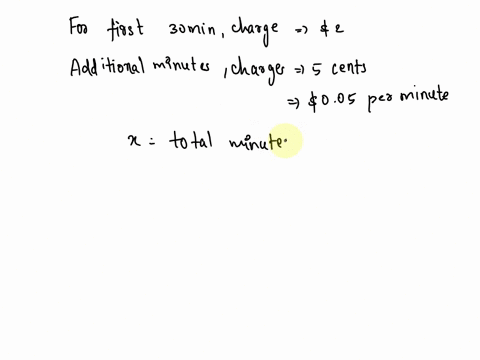 For first 30min, charge => $2
Additional minutes, charges => 5 cents
=> $0.05 per minute
x = total minute.